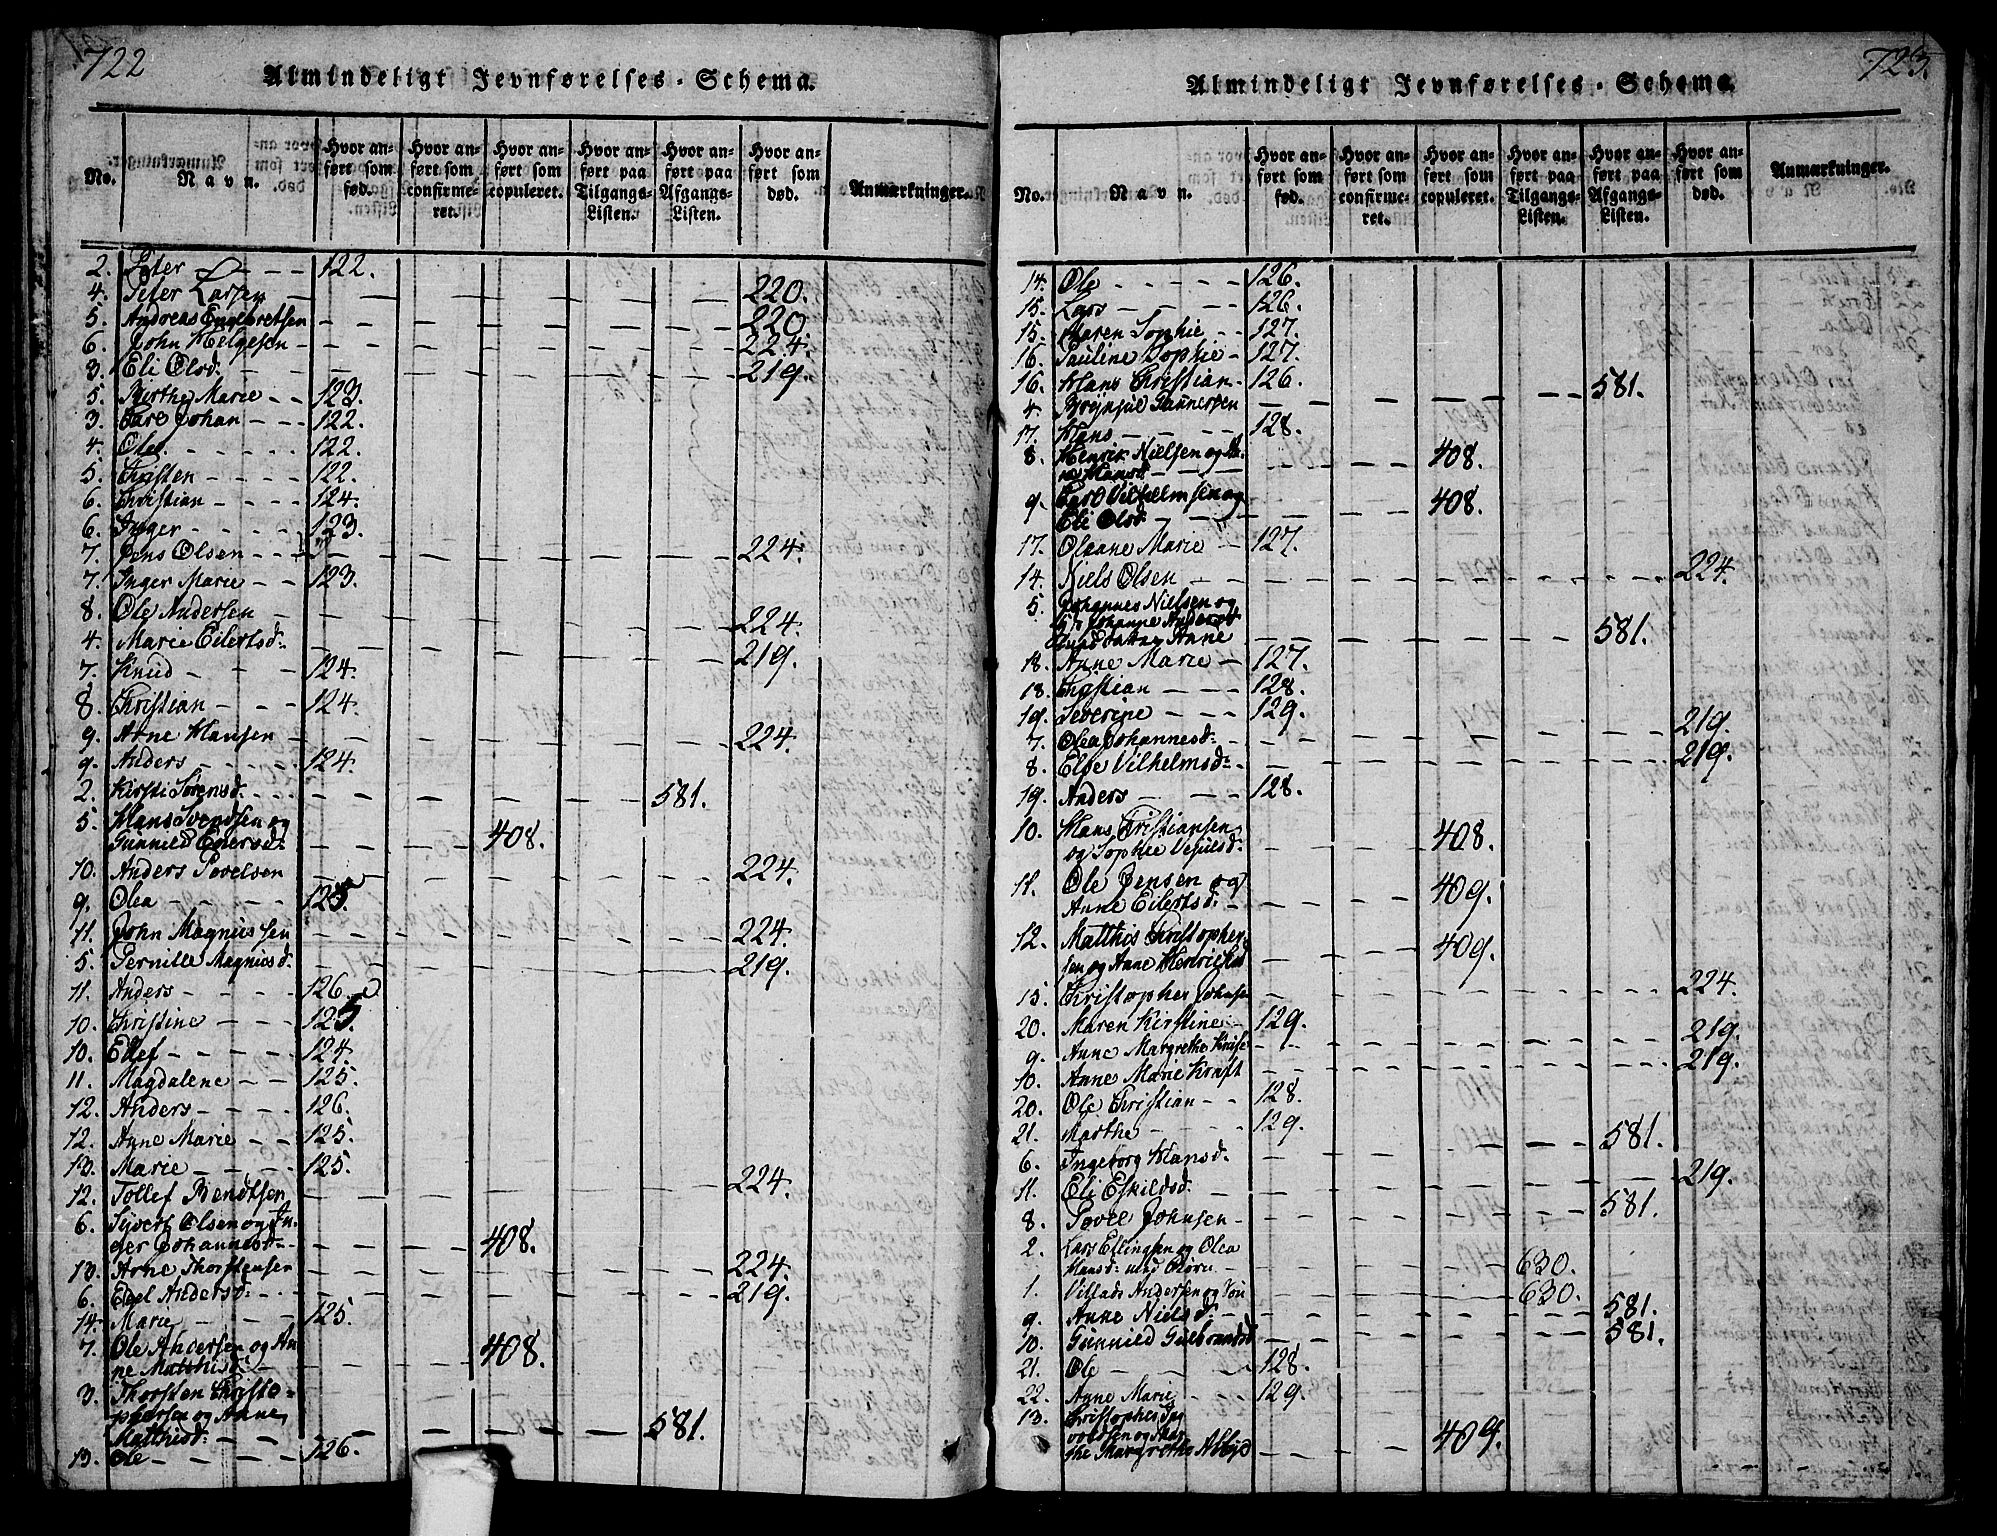 722
Almindeligt Jevnførelses-Schema.
No. Navn. Hvor anført som fød. Hvor anført som confirmeret. Hvor anført som copuleret. Hvor anført paa Tilgangs-Listen. Hvor anført paa Afgangs-Listen. Hvor anført som død. Anmærkninger.
2. Peter 122.
4. Peter Larsen 220.
5. Andreas Engebretsen 220
6. John Helgesen 224.
3. Eli Olsd. 219.
5. Birthe Marie 123.
3. Carl Johan 122.
4. Ole 122.
5. Christen 122.
6. Christian 124.
6. Inger 123.
7. Jens Olsen 224.
7. Inger Marie 123.
8. Ole Andersen 224.
4. Marie Eilertsd. 219.
7. Knud 124.
8. Christian 124.
9. Arne Hansen 224.
9. Anders 124.
2. Kirsti Sørensd. 581.
5. Hans Svendsen og
Gunnild Enersd. 408.
10. Anders Povelsen 224.
9. Olea 125.
11. John Magnussen 224.
5. Pernille Magnusd. 219.
11. Anders 126.
10. Christine 125.
10. Ellef 124.
11. Magdalene 125.
12. Anders 126.
12. Anne Marie 125.
13. Marie 125.
12. Tollef Bendtsen 224.
6. Syvert Olsen og In-
ger Johannesd. 408.
13. Arne Thorstensen 224.
6. Edel Andersd. 219.
14. Marie 125.
7. Ole Andersen og An-
ne Matthisd. 408.
3. Thorsten Christo-
phersen og Anne
Matthisd. 581.
13. Ole 126.
723.
Almindeligt Jevnførelses-Schema.
No. Navn. Hvor anført som fød. Hvor anført som confirmeret. Hvor anført som copuleret. Hvor anført paa Tilgangs-Listen. Hvor anført paa Afgangs-Listen. Hvor anført som død. Anmærkninger.
14. Ole 126.
15. Lars 126.
15. Maren Sophie 127.
16. Pauline Sophie 127.
16. Hans Christian 126.
4. Gunnersen 581.
17. Hans 128.
8. Henrik Nielsen og An-
ne Hansd. 408.
9. Carl Vilhelmsen og
Eli Olsd. 408.
17. Oleane Marie 127.
14. Niels Olsen 224.
5. Johannes Nielsen og
Johanne Andersd.
Anne 581.
18. Anne Marie 127.
18. Christian 128.
19. Severine 129.
7. Olea Johannesd. 219.
8. Else Vilhelmsd. 219.
19. Anders 128.
10. Hans Christiansen
og Sophie 408.
11. Ole Jensen og
Anne Eilertsd. 409.
12. Matthis Christopher-
sen og Anne Henriksd. 409.
15. Christopher Johnsen 224.
20. Maren Kirstine 129.
9. Anne Margrethe 219.
10. Anne Marie Kraft 219.
20. Ole Christian 128.
21. Marthe 129.
6. Ingeborg Hansd. 581.
11. Eli Eskildsd. 219.
8. Povel Johnsen 581.
2. Lars Ellingsen og Olea
Hansd. med Børn 630.
1. Villads Andersen og 630.
9. Anne Nielsd. 581.
10. Gunnild Gulbrandsd. 581.
21. Ole 128.
22. Anne Marie 129.
13. Christopher
og Mar-
the Margrethe 409.